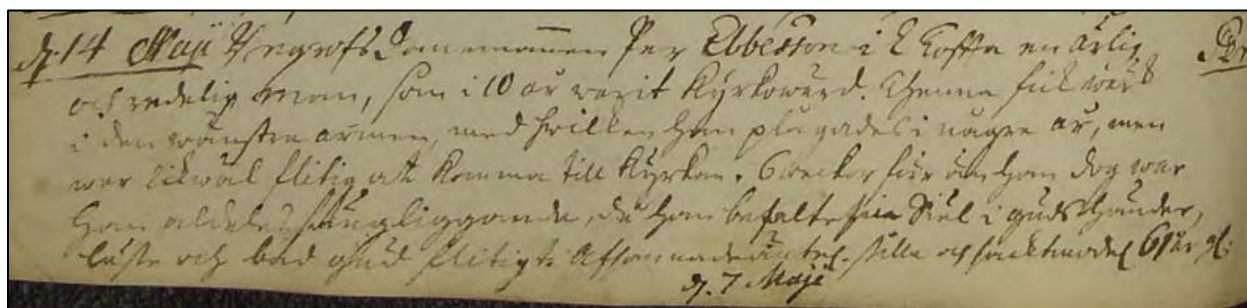 d. 14 Maji Begrofs Dannemannen Per Ebbesson i L Toffta en ärlig
och redelig man, som i 10 år warit Kyrkowärd. Thenne fick wärk
i den wänstra armen, med hwilken han plagades i några år, men
war likwäl flitig att komma till Kyrkan. 6 weckor för än han dog war
han aldeles sängliggande, då han befalte sin Siel i Guds Händer,
läste och bad Gud flitigt. Afsomnade stilla och sacktmodel 61 år gl:
d. 7 Maji